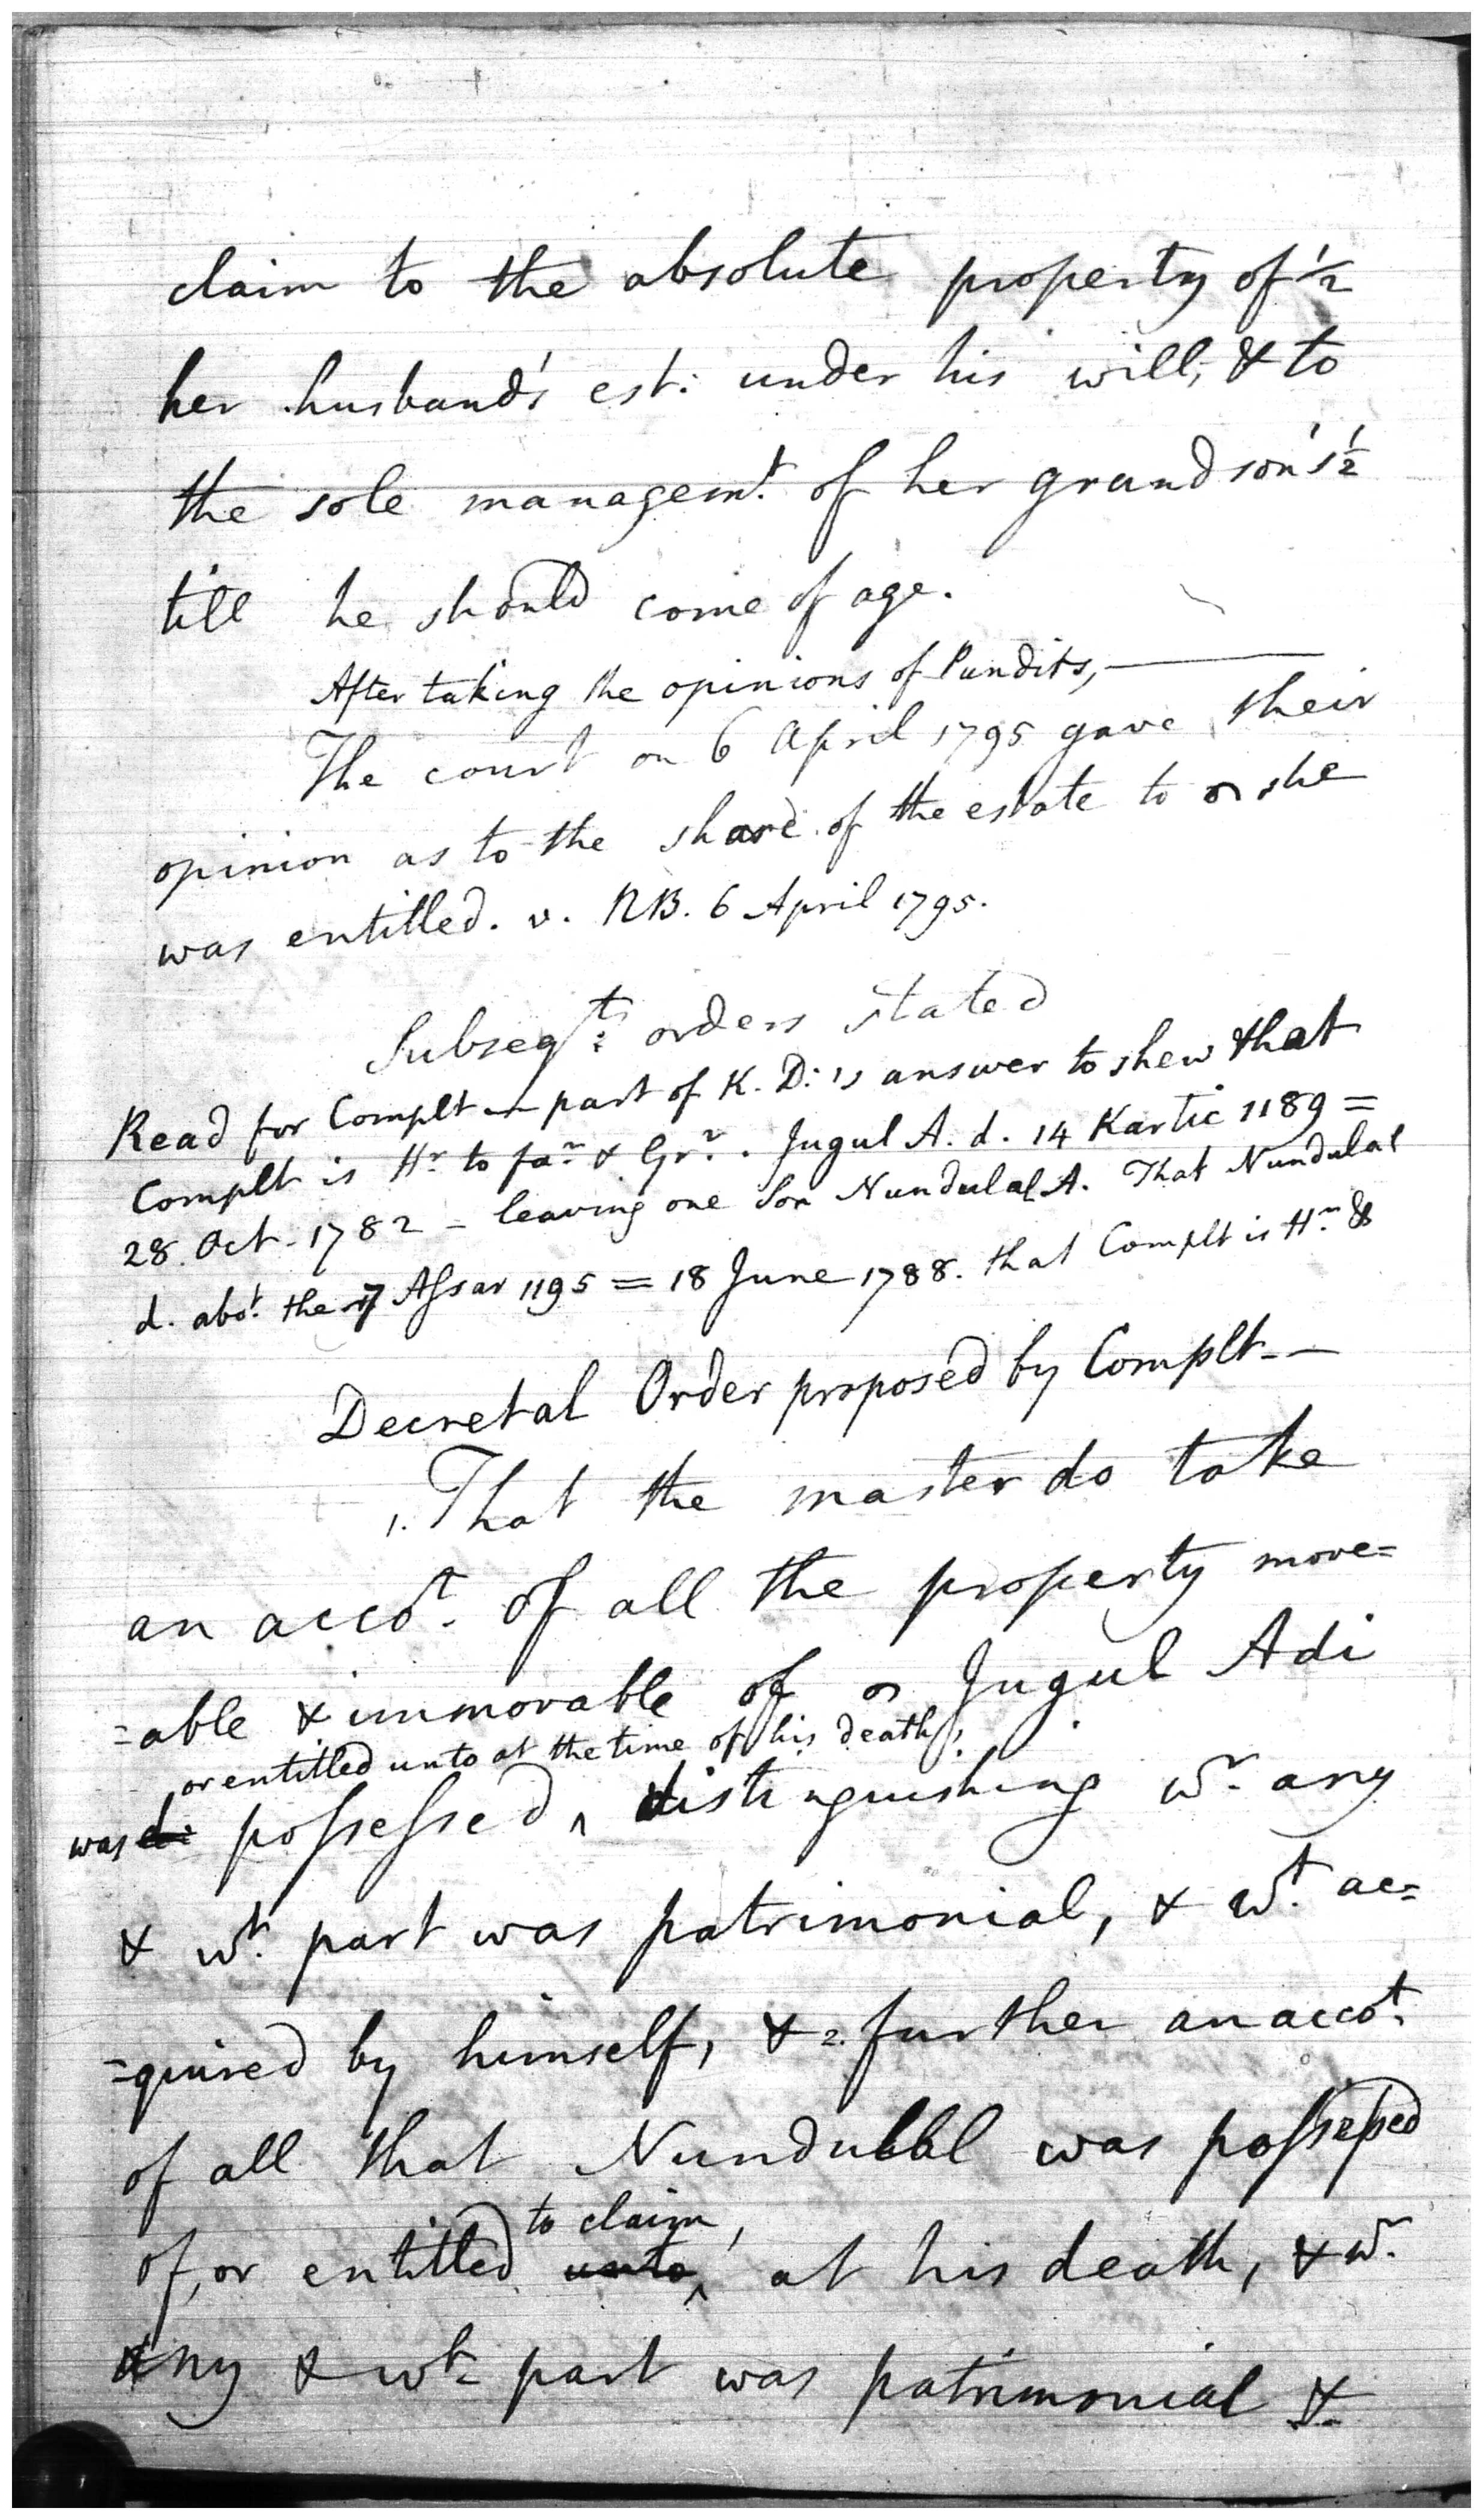 claim to the absolute property of ½
her husband's est: under his will, & to
the sole managemt. of her grandson's ½
till he should come of age.
After taking the opinions of Pundits, —
The court on 6 April 1795 gave their
opinion as to the share of the estate to she
was entitled. v. NB. 6 April 1795.
Subseqt: orders stated
Read for Complt — part of K. D:'s answer to shew that
Complt is Hr. to far. & Gr. Jugul A. d. 14 Kartic 1189 =
28. Oct. 1782 - leaving one son Nundulal A. That Nundulal
d. abot. the 7 Assar 1195 = 18 June 1788. that Complt is Hr. &
Decretal Order proposed by Complt —
1. That the master do take
an accot. of all the property move=
=able & immovable of Jugul Adi
or entitled unto at the time of his death,
was possessed, distinguishing wr. any
& wt. part was patrimonial, & wt. ac=
=quired by himself, & 2. further an accot.
of all that Nundulal was possessed
to claim,
of, or entitled unto at his death, & wr.
any & wt. part was patrimonial &